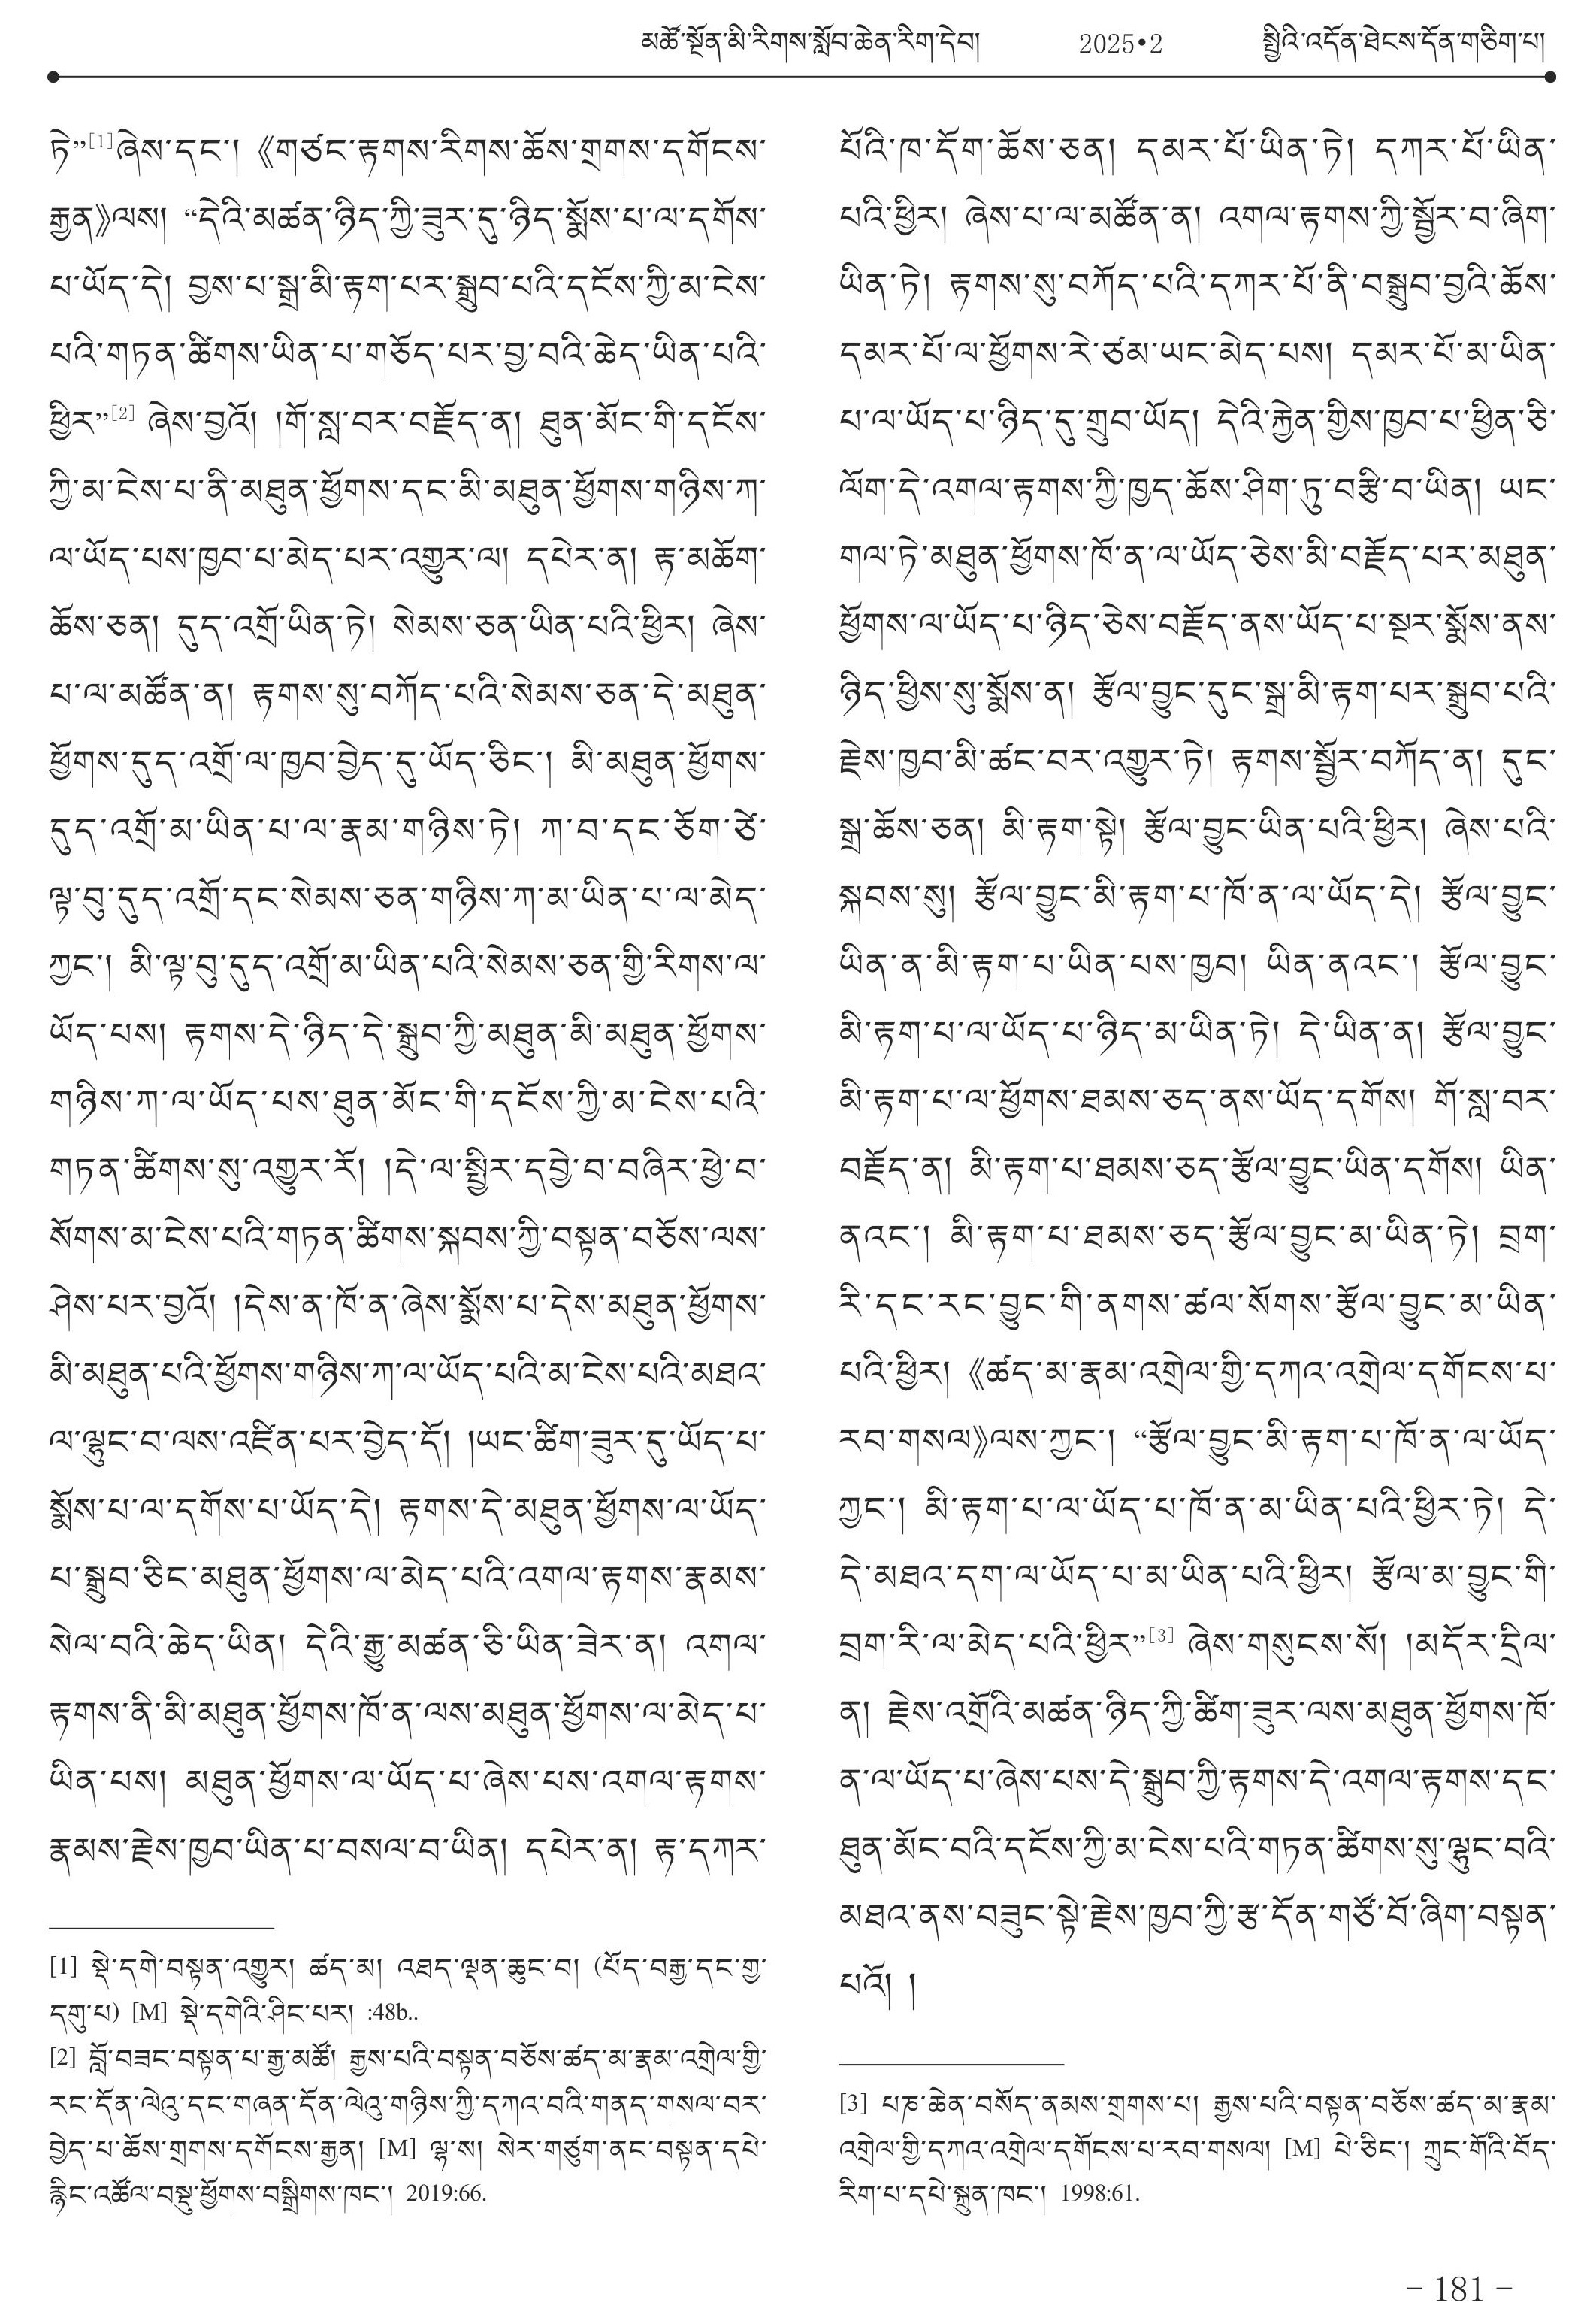 མཚོ་སྔོན་མི་རིགས་སློབ་ཆེན་རིག་དེབ། 2025•2 སྤྱིའི་འདོན་ཐེངས་དོན་གཅིག་པ།
ཏེ”[1]ཞེས་དང་། 《གཙང་རྟགས་རིགས་ཆོས་གྲགས་དགོངས་
རྒྱན》ལས། “དེའི་མཚན་ཉིད་ཀྱི་ཟུར་དུ་ཉིད་སྨོས་པ་ལ་དགོས་
པ་ཡོད་དེ། བྱས་པ་སྒྲ་མི་རྟག་པར་སྒྲུབ་པའི་དངོས་ཀྱི་མ་ངེས་
པའི་གཏན་ཚིགས་ཡིན་པ་གཅོད་པར་བྱ་བའི་ཆེད་ཡིན་པའི་
ཕྱིར”[2] ཞེས་བྱའོ། །གོ་སླ་བར་བརྗོད་ན། ཐུན་མོང་གི་དངོས་
ཀྱི་མ་ངེས་པ་ནི་མཐུན་ཕྱོགས་དང་མི་མཐུན་ཕྱོགས་གཉིས་ཀ་
ལ་ཡོད་པས་ཁྱབ་པ་མེད་པར་འགྱུར་ལ། དཔེར་ན། རྟ་མཆོག་
ཆོས་ཅན། དུད་འགྲོ་ཡིན་ཏེ། སེམས་ཅན་ཡིན་པའི་ཕྱིར། ཞེས་
པ་ལ་མཚོན་ན། རྟགས་སུ་བཀོད་པའི་སེམས་ཅན་དེ་མཐུན་
ཕྱོགས་དུད་འགྲོ་ལ་ཁྱབ་བྱེད་དུ་ཡོད་ཅིང་། མི་མཐུན་ཕྱོགས་
དུད་འགྲོ་མ་ཡིན་པ་ལ་རྣམ་གཉིས་ཏེ། ཀ་བ་དང་ཅོག་ཙེ་
ལྟ་བུ་དུད་འགྲོ་དང་སེམས་ཅན་གཉིས་ཀ་མ་ཡིན་པ་ལ་མེད་
ཀྱང་། མི་ལྟ་བུ་དུད་འགྲོ་མ་ཡིན་པའི་སེམས་ཅན་གྱི་རིགས་ལ་
ཡོད་པས། རྟགས་དེ་ཉིད་དེ་སྒྲུབ་ཀྱི་མཐུན་མི་མཐུན་ཕྱོགས་
གཉིས་ཀ་ལ་ཡོད་པས་ཐུན་མོང་གི་དངོས་ཀྱི་མ་ངེས་པའི་
གཏན་ཚིགས་སུ་འགྱུར་རོ། །དེ་ལ་སྤྱིར་དབྱེ་བ་བཞིར་ཕྱེ་བ་
སོགས་མ་ངེས་པའི་གཏན་ཚིགས་སྐབས་ཀྱི་བསྟན་བཅོས་ལས་
ཤེས་པར་བྱའོ། །དེས་ན་ཁོ་ན་ཞེས་སྨོས་པ་དེས་མཐུན་ཕྱོགས་
མི་མཐུན་པའི་ཕྱོགས་གཉིས་ཀ་ལ་ཡོད་པའི་མ་ངེས་པའི་མཐའ་
ལ་ལྷུང་བ་ལས་འཛིན་པར་བྱེད་དོ། །ཡང་ཚིག་ཟུར་དུ་ཡོད་པ་
སྨོས་པ་ལ་དགོས་པ་ཡོད་དེ། རྟགས་དེ་མཐུན་ཕྱོགས་ལ་ཡོད་
པ་སྒྲུབ་ཅིང་མཐུན་ཕྱོགས་ལ་མེད་པའི་འགལ་རྟགས་རྣམས་
སེལ་བའི་ཆེད་ཡིན། དེའི་རྒྱུ་མཚན་ཅི་ཡིན་ཟེར་ན། འགལ་
རྟགས་ནི་མི་མཐུན་ཕྱོགས་ཁོ་ན་ལས་མཐུན་ཕྱོགས་ལ་མེད་པ་
ཡིན་པས། མཐུན་ཕྱོགས་ལ་ཡོད་པ་ཞེས་པས་འགལ་རྟགས་
རྣམས་རྗེས་ཁྱབ་ཡིན་པ་བསལ་བ་ཡིན། དཔེར་ན། རྟ་དཀར་
[1] སྡེ་དགེ་བསྟན་འགྱུར། ཚད་མ། འཐད་ལྡན་ཆུང་བ། (པོད་བརྒྱ་དང་གྱ་
དགུ་པ) [M] སྡེ་དགེའི་ཤིང་པར། :48b..
[2] བློ་བཟང་བསྟན་པ་རྒྱ་མཚོ། རྒྱས་པའི་བསྟན་བཅོས་ཚད་མ་རྣམ་འགྲེལ་གྱི་
རང་དོན་ལེའུ་དང་གཞན་དོན་ལེའུ་གཉིས་ཀྱི་དཀའ་བའི་གནད་གསལ་བར་
བྱེད་པ་ཆོས་གྲགས་དགོངས་རྒྱན། [M] ལྷ་ས། སེར་གཙུག་ནང་བསྟན་དཔེ་
རྙིང་འཚོལ་བསྡུ་ཕྱོགས་བསྒྲིགས་ཁང་། 2019:66.
པོའི་ཁ་དོག་ཆོས་ཅན། དམར་པོ་ཡིན་ཏེ། དཀར་པོ་ཡིན་
པའི་ཕྱིར། ཞེས་པ་ལ་མཚོན་ན། འགལ་རྟགས་ཀྱི་སྦྱོར་བ་ཞིག་
ཡིན་ཏེ། རྟགས་སུ་བཀོད་པའི་དཀར་པོ་ནི་བསྒྲུབ་བྱའི་ཆོས་
དམར་པོ་ལ་ཕྱོགས་རེ་ཙམ་ཡང་མེད་པས། དམར་པོ་མ་ཡིན་
པ་ལ་ཡོད་པ་ཉིད་དུ་གྲུབ་ཡོད། དེའི་རྐྱེན་གྱིས་ཁྱབ་པ་ཕྱིན་ཅི་
ལོག་དེ་འགལ་རྟགས་ཀྱི་ཁྱད་ཆོས་ཤིག་ཏུ་བརྩི་བ་ཡིན། ཡང་
གལ་ཏེ་མཐུན་ཕྱོགས་ཁོ་ན་ལ་ཡོད་ཅེས་མི་བརྗོད་པར་མཐུན་
ཕྱོགས་ལ་ཡོད་པ་ཉིད་ཅེས་བརྗོད་ནས་ཡོད་པ་སྔར་སྨོས་ནས་
ཉིད་ཕྱིས་སུ་སྨོས་ན། རྩོལ་བྱུང་དུང་སྒྲ་མི་རྟག་པར་སྒྲུབ་པའི་
རྗེས་ཁྱབ་མི་ཚང་བར་འགྱུར་ཏེ། རྟགས་སྦྱོར་བཀོད་ན། དུང་
སྒྲ་ཆོས་ཅན། མི་རྟག་སྟེ། རྩོལ་བྱུང་ཡིན་པའི་ཕྱིར། ཞེས་པའི་
སྐབས་སུ། རྩོལ་བྱུང་མི་རྟག་པ་ཁོ་ན་ལ་ཡོད་དེ། རྩོལ་བྱུང་
ཡིན་ན་མི་རྟག་པ་ཡིན་པས་ཁྱབ། ཡིན་ནའང་། རྩོལ་བྱུང་
མི་རྟག་པ་ལ་ཡོད་པ་ཉིད་མ་ཡིན་ཏེ། དེ་ཡིན་ན། རྩོལ་བྱུང་
མི་རྟག་པ་ལ་ཕྱོགས་ཐམས་ཅད་ནས་ཡོད་དགོས། གོ་སླ་བར་
བརྗོད་ན། མི་རྟག་པ་ཐམས་ཅད་རྩོལ་བྱུང་ཡིན་དགོས། ཡིན་
ནའང་། མི་རྟག་པ་ཐམས་ཅད་རྩོལ་བྱུང་མ་ཡིན་ཏེ། བྲག་
རི་དང་རང་བྱུང་གི་ནགས་ཚལ་སོགས་རྩོལ་བྱུང་མ་ཡིན་
པའི་ཕྱིར། 《ཚད་མ་རྣམ་འགྲེལ་གྱི་དཀའ་འགྲེལ་དགོངས་པ་
རབ་གསལ》ལས་ཀྱང་། “རྩོལ་བྱུང་མི་རྟག་པ་ཁོ་ན་ལ་ཡོད་
ཀྱང་། མི་རྟག་པ་ལ་ཡོད་པ་ཁོ་ན་མ་ཡིན་པའི་ཕྱིར་ཏེ། དེ་
དེ་མཐའ་དག་ལ་ཡོད་པ་མ་ཡིན་པའི་ཕྱིར། རྩོལ་མ་བྱུང་གི་
བྲག་རི་ལ་མེད་པའི་ཕྱིར”[3] ཞེས་གསུངས་སོ། །མདོར་དྲིལ་
ན། རྗེས་འགྲོའི་མཚན་ཉིད་ཀྱི་ཚིག་ཟུར་ལས་མཐུན་ཕྱོགས་ཁོ་
ན་ལ་ཡོད་པ་ཞེས་པས་དེ་སྒྲུབ་ཀྱི་རྟགས་དེ་འགལ་རྟགས་དང་
ཐུན་མོང་བའི་དངོས་ཀྱི་མ་ངེས་པའི་གཏན་ཚིགས་སུ་ལྷུང་བའི་
མཐའ་ནས་བཟུང་སྟེ་རྗེས་ཁྱབ་ཀྱི་རྩ་དོན་གཙོ་བོ་ཞིག་བསྟན་
པའོ། །
[3] པཎ་ཆེན་བསོད་ནམས་གྲགས་པ། རྒྱས་པའི་བསྟན་བཅོས་ཚད་མ་རྣམ་
འགྲེལ་གྱི་དཀའ་འགྲེལ་དགོངས་པ་རབ་གསལ། [M] པེ་ཅིང་། ཀྲུང་གོའི་བོད་
རིག་པ་དཔེ་སྐྲུན་ཁང་། 1998:61.
– 181 –